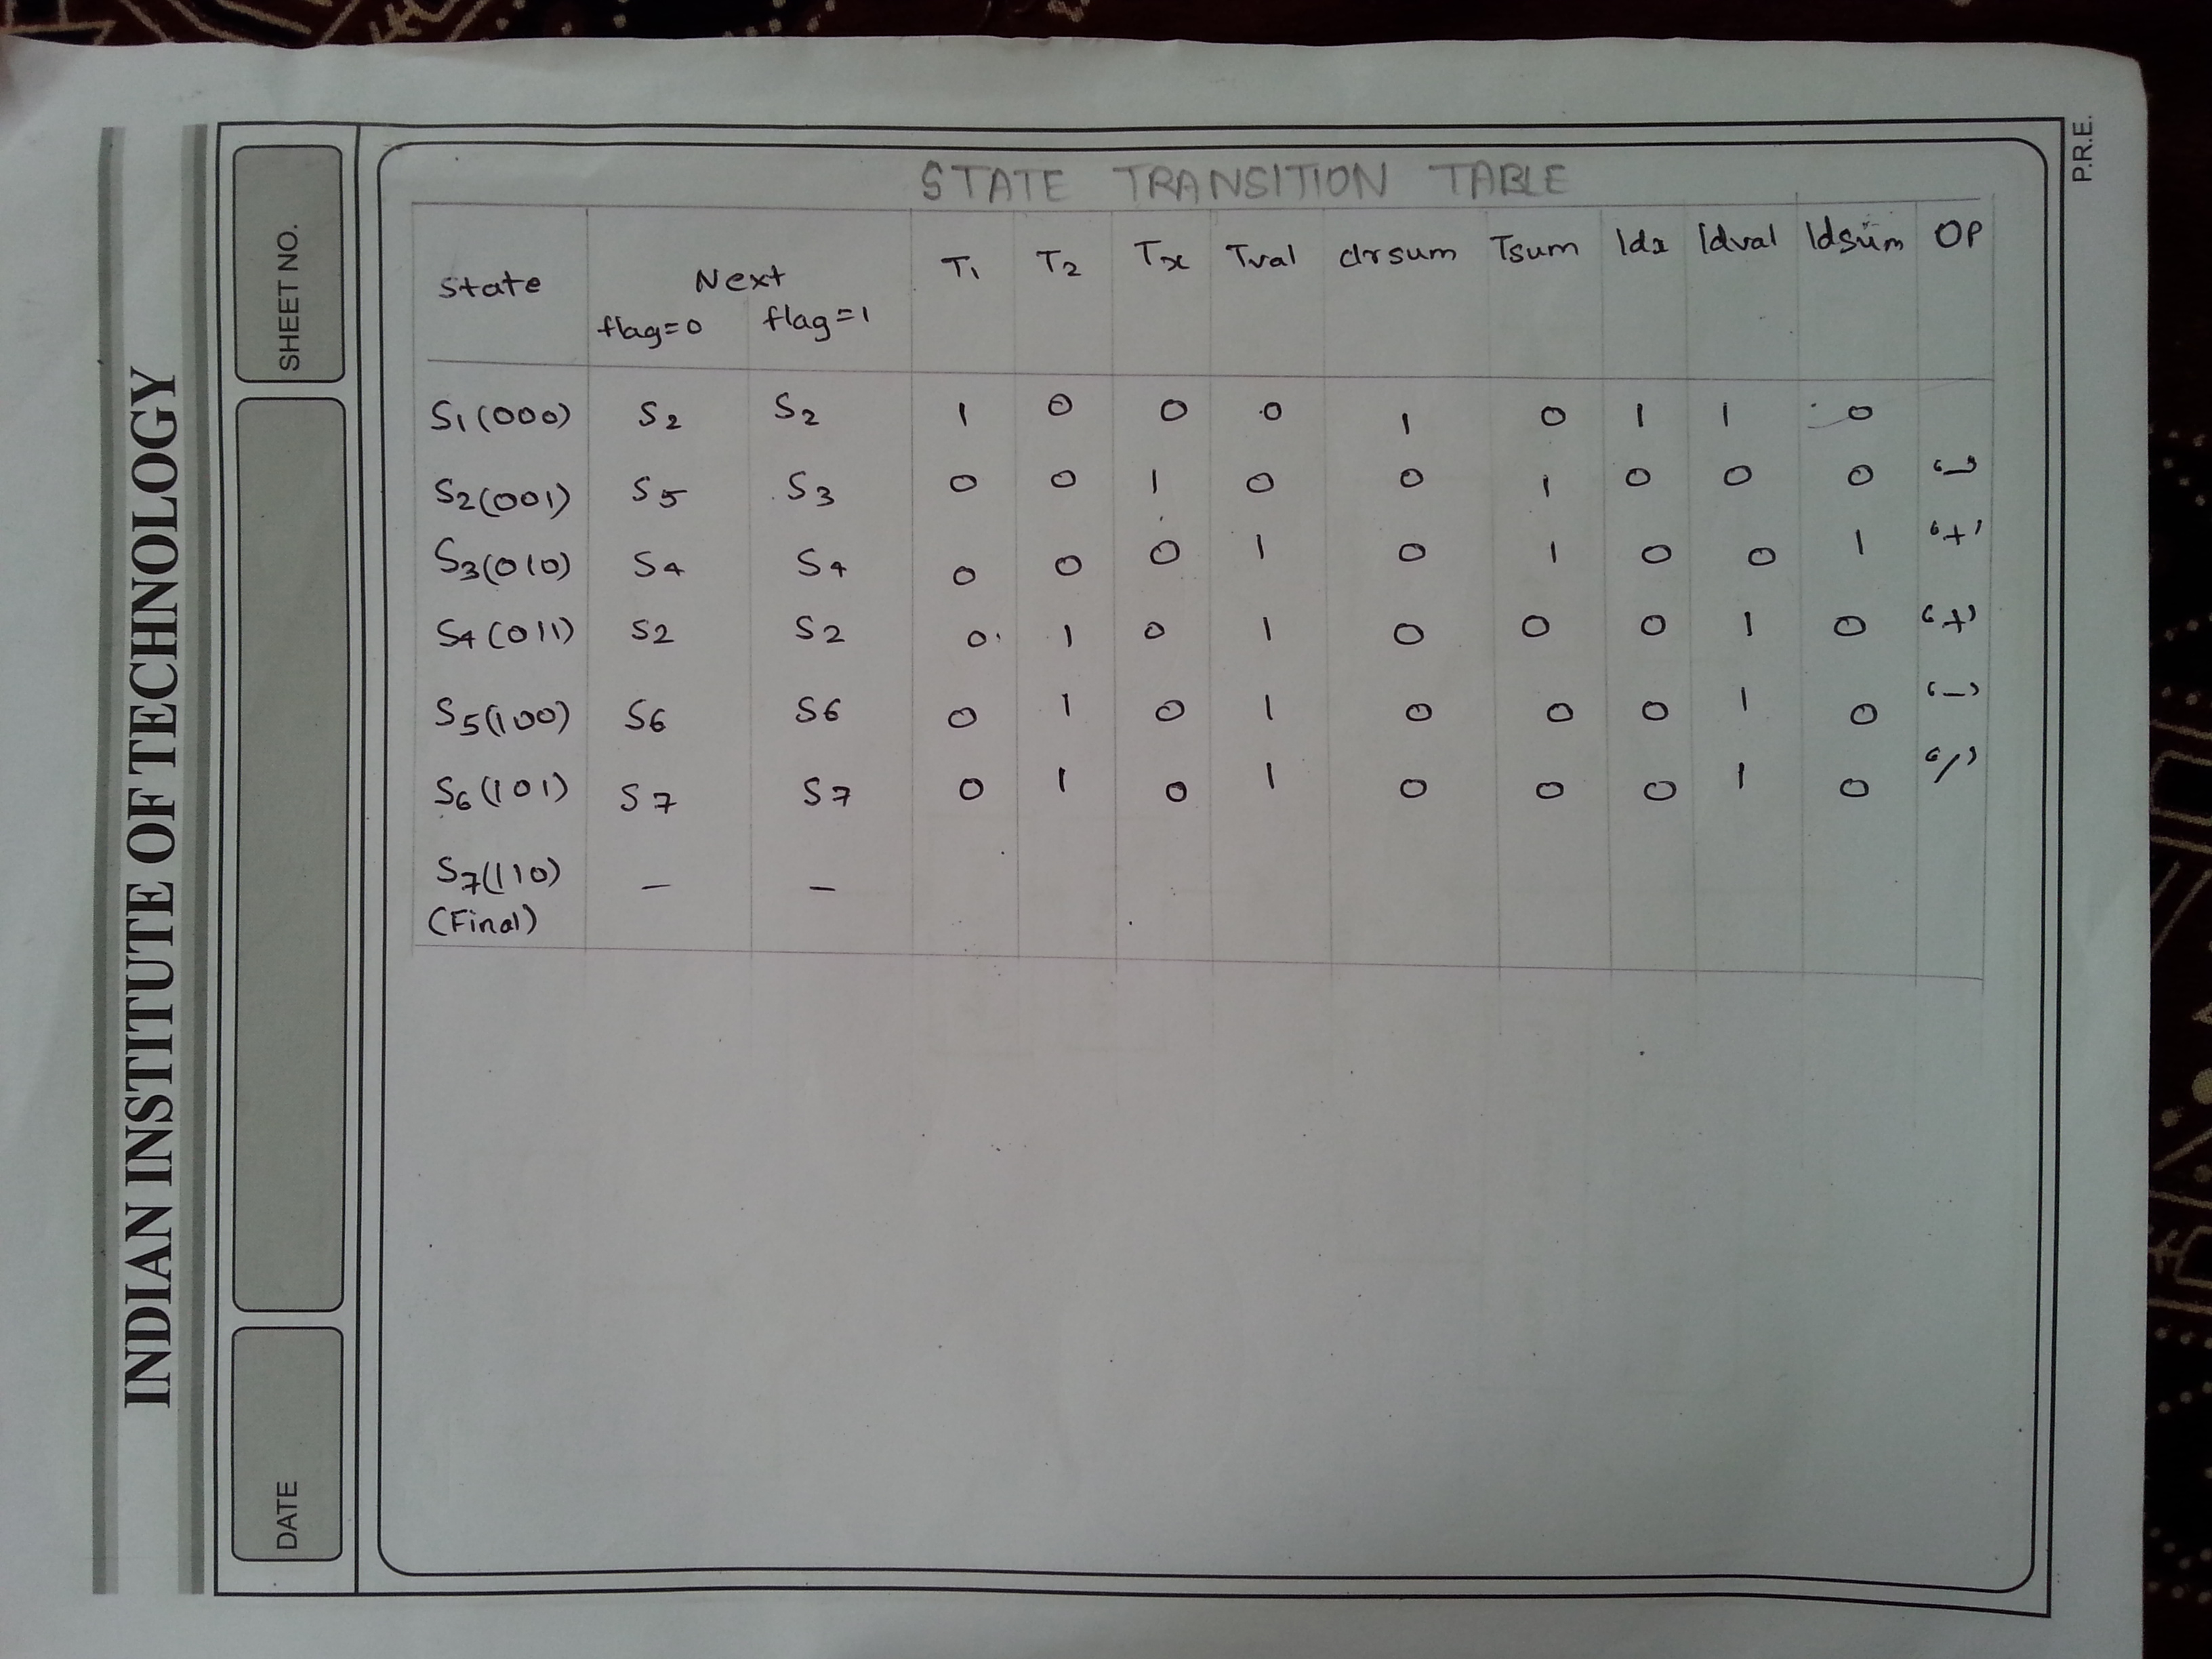 INDIAN INSTITUTE OF TECHNOLOGY
DATE
SHEET NO.
STATE TRANSITION TABLE
State Next T1 T2 Tx Tval clrsum Tsum ldx ldval ldsum OP
flag=0 flag=1
S1(000) S2 S2 1 0 0 0 1 0 1 1 0
S2(001) S5 S3 0 0 1 0 0 1 0 0 0 '-'
S3(010) S4 S4 0 0 0 1 0 1 0 0 1 '+'
S4(011) S2 S2 0 1 0 1 0 0 0 1 0 '+'
S5(100) S6 S6 0 1 0 1 0 0 0 1 0 '-'
S6(101) S7 S7 0 1 0 1 0 0 0 1 0 '/'
S7(110) - -
(Final)
P.R.E.